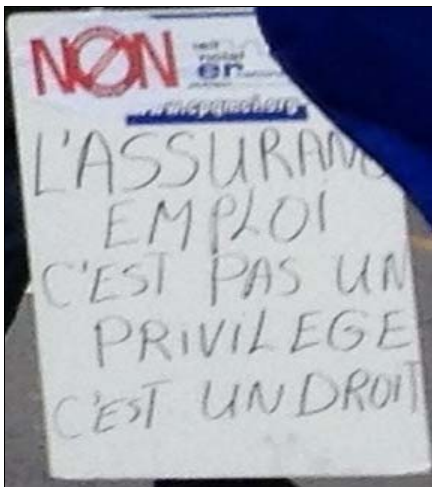 NON
L'ASSURAN
EMPLOI
C'EST PAS UN
PRIVILEGE
C'EST UN DROIT